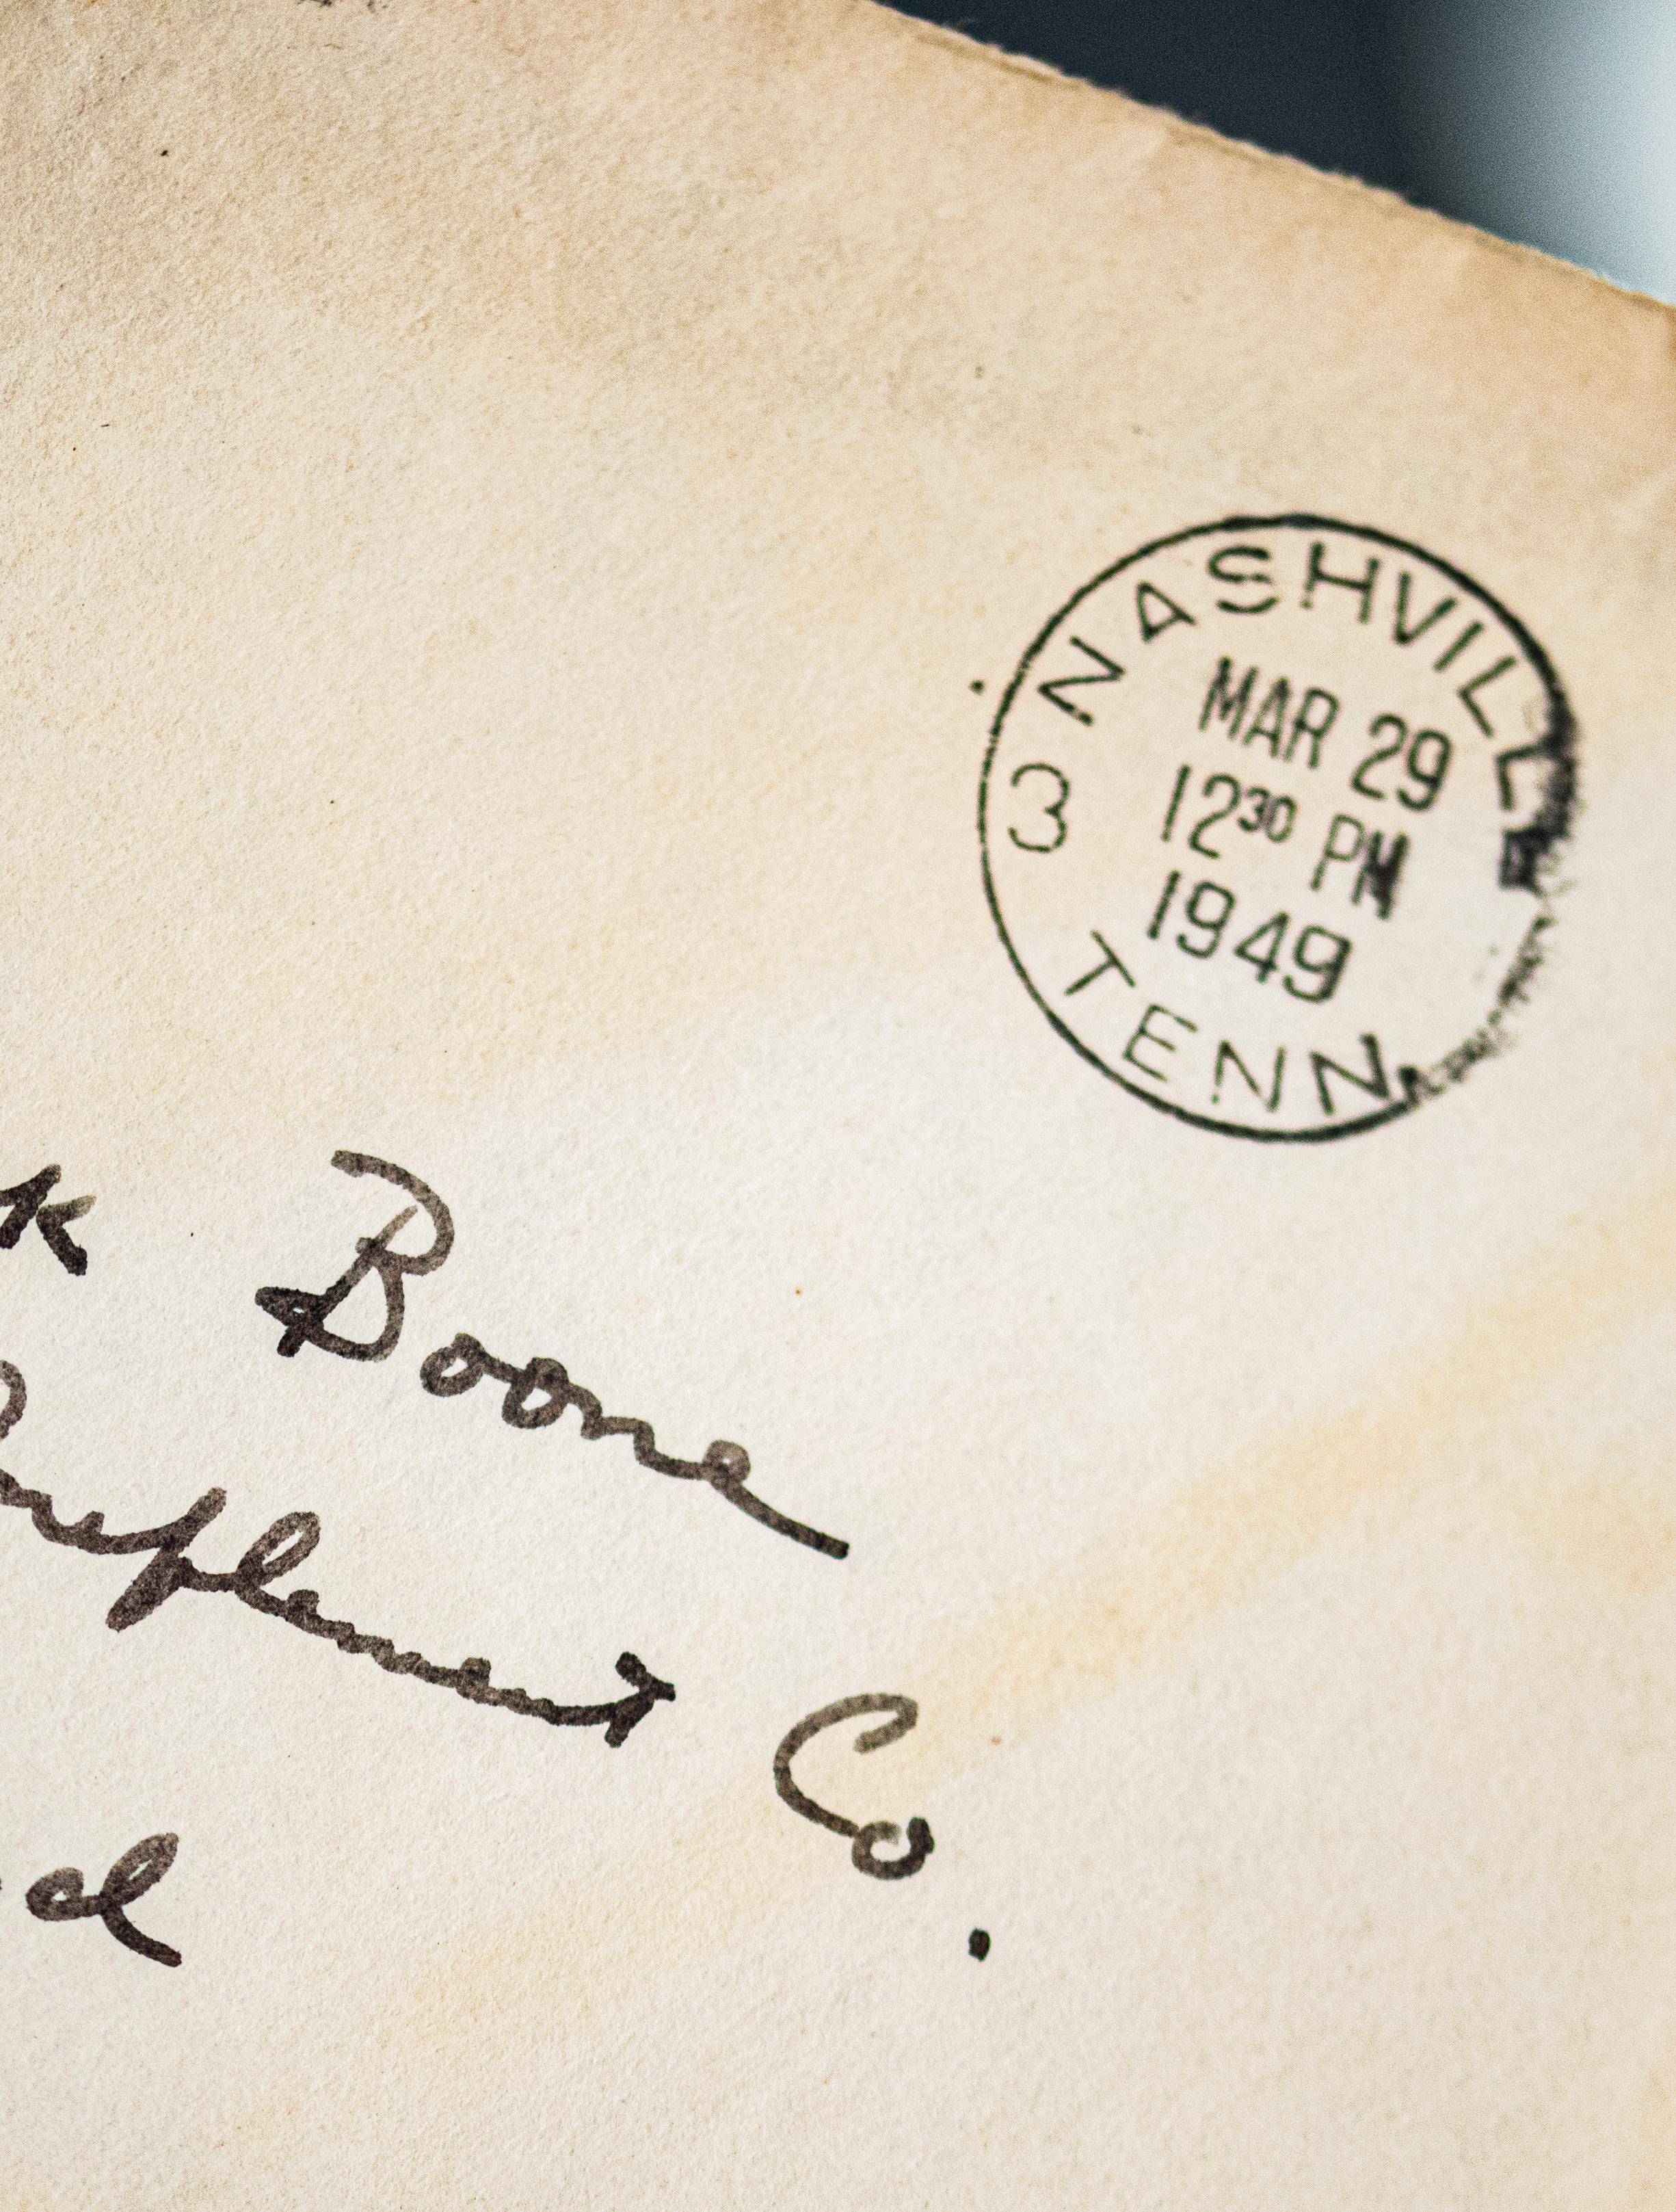 NASHVILLE
3
MAR 29
12³⁰ PM
1949
TENN.
k Boone
Implement Co.
d